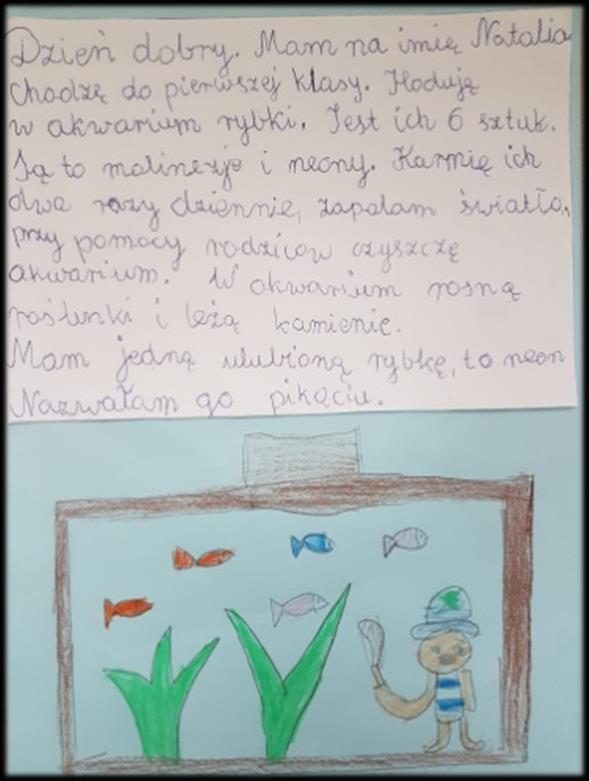 Dzień dobry. Mam na imię Natalia
Chodzę do pierwszej klasy. Hoduję
w akwarium rybki. Jest ich 6 sztuk.
Są to molinezje i neony. Karmię ich
dwa razy dziennie, zapalam światło,
przy pomocy rodziców czyszczę
akwarium. W akwarium rosną
roślinki i leżą kamienie.
Mam jedną ulubioną rybkę, to neon
Nazwałam go pikaciu.